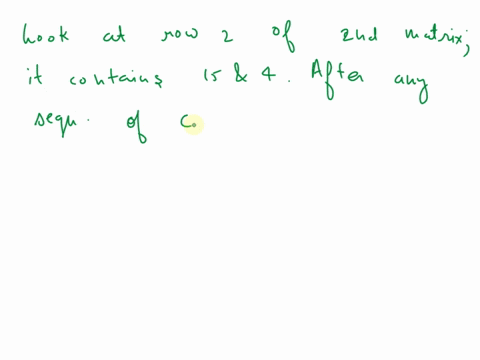 Look at row 2 of 2nd matrix;
it contains 15 & 4. After any
sequ. of c